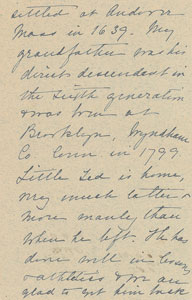 settled at Andover
Mass in 1639. My
grandfather was his
direct descendant in
the sixth generation
& was born at
Brooklyn, Wyndham
Co Conn in 1799
Little Ted is home,
very much better &
more manly than
when he left. He has
done well in lessons
& athletics & we are
glad to get him back